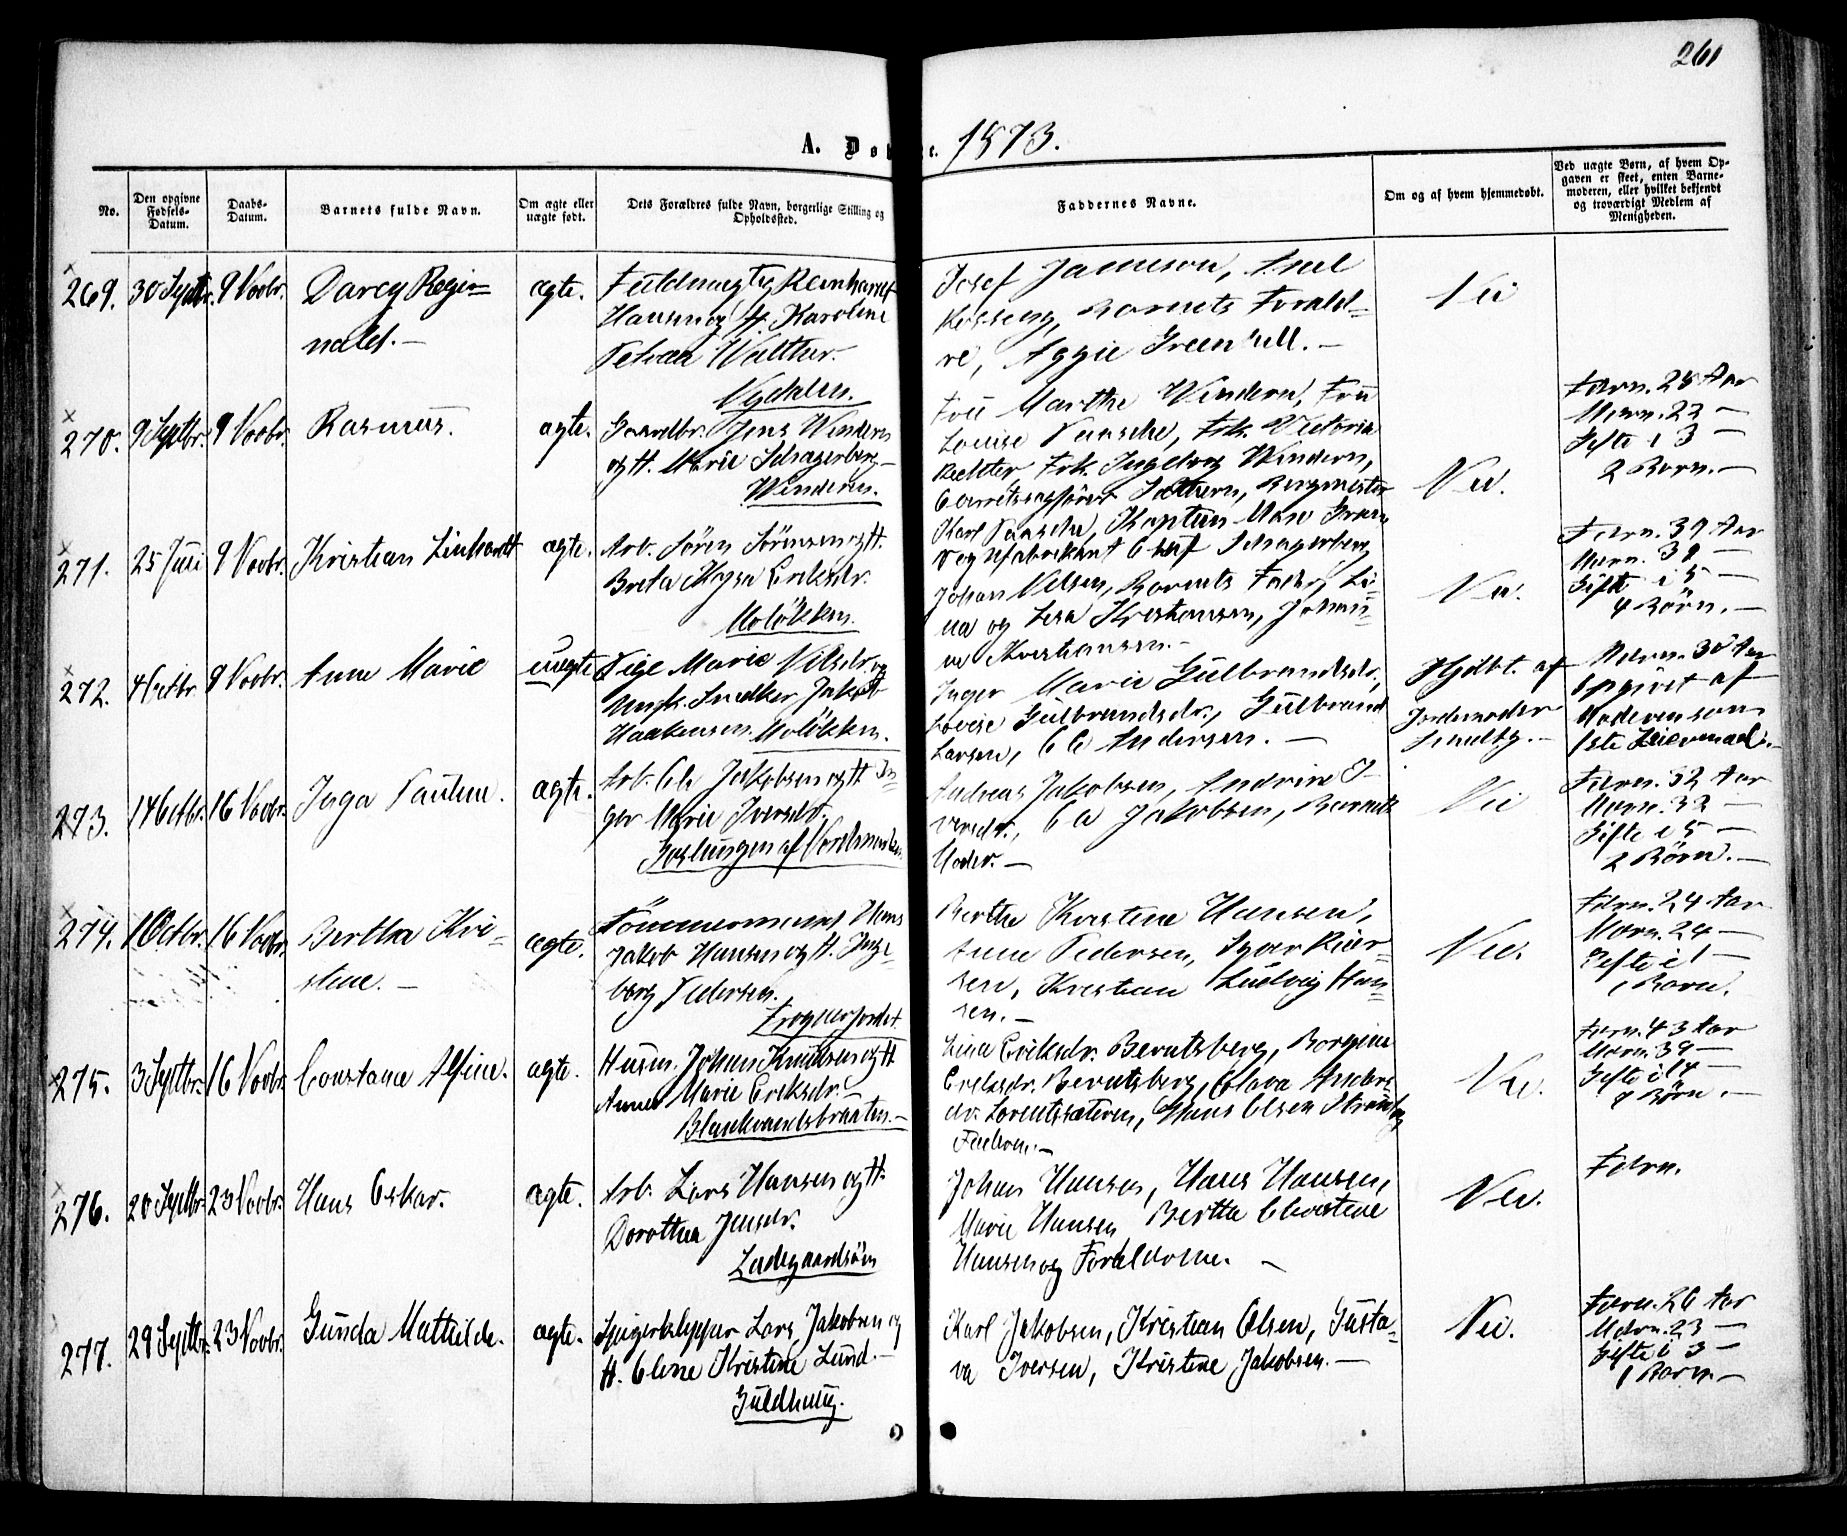 261
A. Døbte. 1873.
No.
Den opgivne Fødsels-Datum.
Daabs-Datum.
Barnets fulde Navn.
Om ægte eller uægte født.
Dets Forældres fulde Navn, borgerlige Stilling og Opholdssted.
Faddernes Navne.
Om og af hvem hjemmedøbt.
Ved uægte Børn, af hvem Op-
gaven er skeet, enten Barne-
moderen, eller hvilket bekjendt
og troværdigt Medlem af
Menigheden.
269. 30 Septbr. 9 Novbr. Darcy Regi-
nald. —
ægte.
Fuldmægtig Reinhardt
Hansen og H. Karoline
Petrea Walther.
Nydalen.
Josef Jameson, Axel
Barnets Foræld-
re, Aggie Greenhill. —
Nei
270. 9 Septbr. 9 Novbr. Rasmus.
ægte.
Gaardbr. Jens Windern
og H. Marie Schagerberg —
Winderen.
Fru Marthe Windern, Fru
Louise Paasche, Frk. Victoria
Richter, Frk. Ingeborg Windern,
Bergmester
Karl Paasche, Kaptein
Schagerberg
Nei.
Færn. 28 Aar
Mærn. 23 —
Gifte i 3 —
2 Børn. —
271. 25 Juni 9 Novbr. Kristian Linhardt
ægte.
Arb. Sören Sörensen og H.
Breta Kysa Eriksdr.
Molökken.
Johan Nilsen, Barnets Fader, Li-
na og Lisa Kristiansen, Johan-
ne Kristiansen. —
Nei.
Færn. 39 Aar
Mærn. 39 —
Gifte i 5 —
4 Börn. —
272. 4 Octbr. 9 Novbr. Anne Marie
uægte
Pige Marie Nilsdr. og
Ungk. Snedker Jakob
Haakensen. Molökken.
Inger Marie Gulbrandsdr.,
Lovise Gulbrandsdr., Gulbrand
Larsen, Ole Andersen. —
Hjdbt. af
Jordemoder
Sundby. —
Mærn. 30 Aar
Opgivet af
Moderen som
1ste Leiermaal. —
273. 14 Octbr. 16 Novbr. Inga Pauline.
ægte.
Arb. Ole Jakobsen og H. In-
ger Marie Iversdt.
af Nordmarken.
Andreas Jakobsen, Andrine I-
versdr., Ole Jakobsen, Barnets
Moder. —
Nei
Færn. 32 Aar
Mærn. 32 —
Gifte i 5 —
2 Börn. —
274. 1 Octbr. 16 Novbr. Bertha Kri-
stine. —
ægte.
Tömmermand Hans
Jakob Hansen og H. Inge-
borg Pedersen.
Frognerjordet.
Berthe Kristine Hansen,
Anne Pedersen,
Kristian Ludvig Han-
sen. —
Nei.
Færn. 24 Aar
Mærn. 24 —
Gifte i 1 —
1 Barn.
275. 3 Septbr. 16 Novbr. Constance Alfine.
ægte.
Husm. Johan Knudsen og H.
Anne Marie Eriksdr. —
Blankvandsbraaten. —
Lina Eriksdr. Berntsberg, Borgine
Eriksdr. Berntsberg, Olava Anders-
dr. Lorentssæteren, Hans Olsen
Faderen. —
Nei.
Færn. 43 Aar
Mærn. 39 —
Gifte i 14 —
9 Börn. —
276. 20 Septbr. 23 Novbr. Hans Oskar.
ægte.
Arb. Lars Hansen og H.
Dorothea Jensdr.
Ladegaardsöen
Johan Hansen, Hans Hansen,
Marie Hansen Berthe Christine
Hansen og Forældrene. —
Nei.
Færn.
277. 29 Septbr. 23 Novbr. Gunda Mathilde.
ægte.
Spigerklipper Lars Jakobsen og
H. Oline Kristine Lund. —
Guldhaug.
Karl Jakobsen, Kristian Olsen, Gusta-
va Iversen, Kristine Jakobsen. —
Nei.
Færn. 26 Aar
Mærn. 23 —
Gifte i 3 —
1 Barn. —